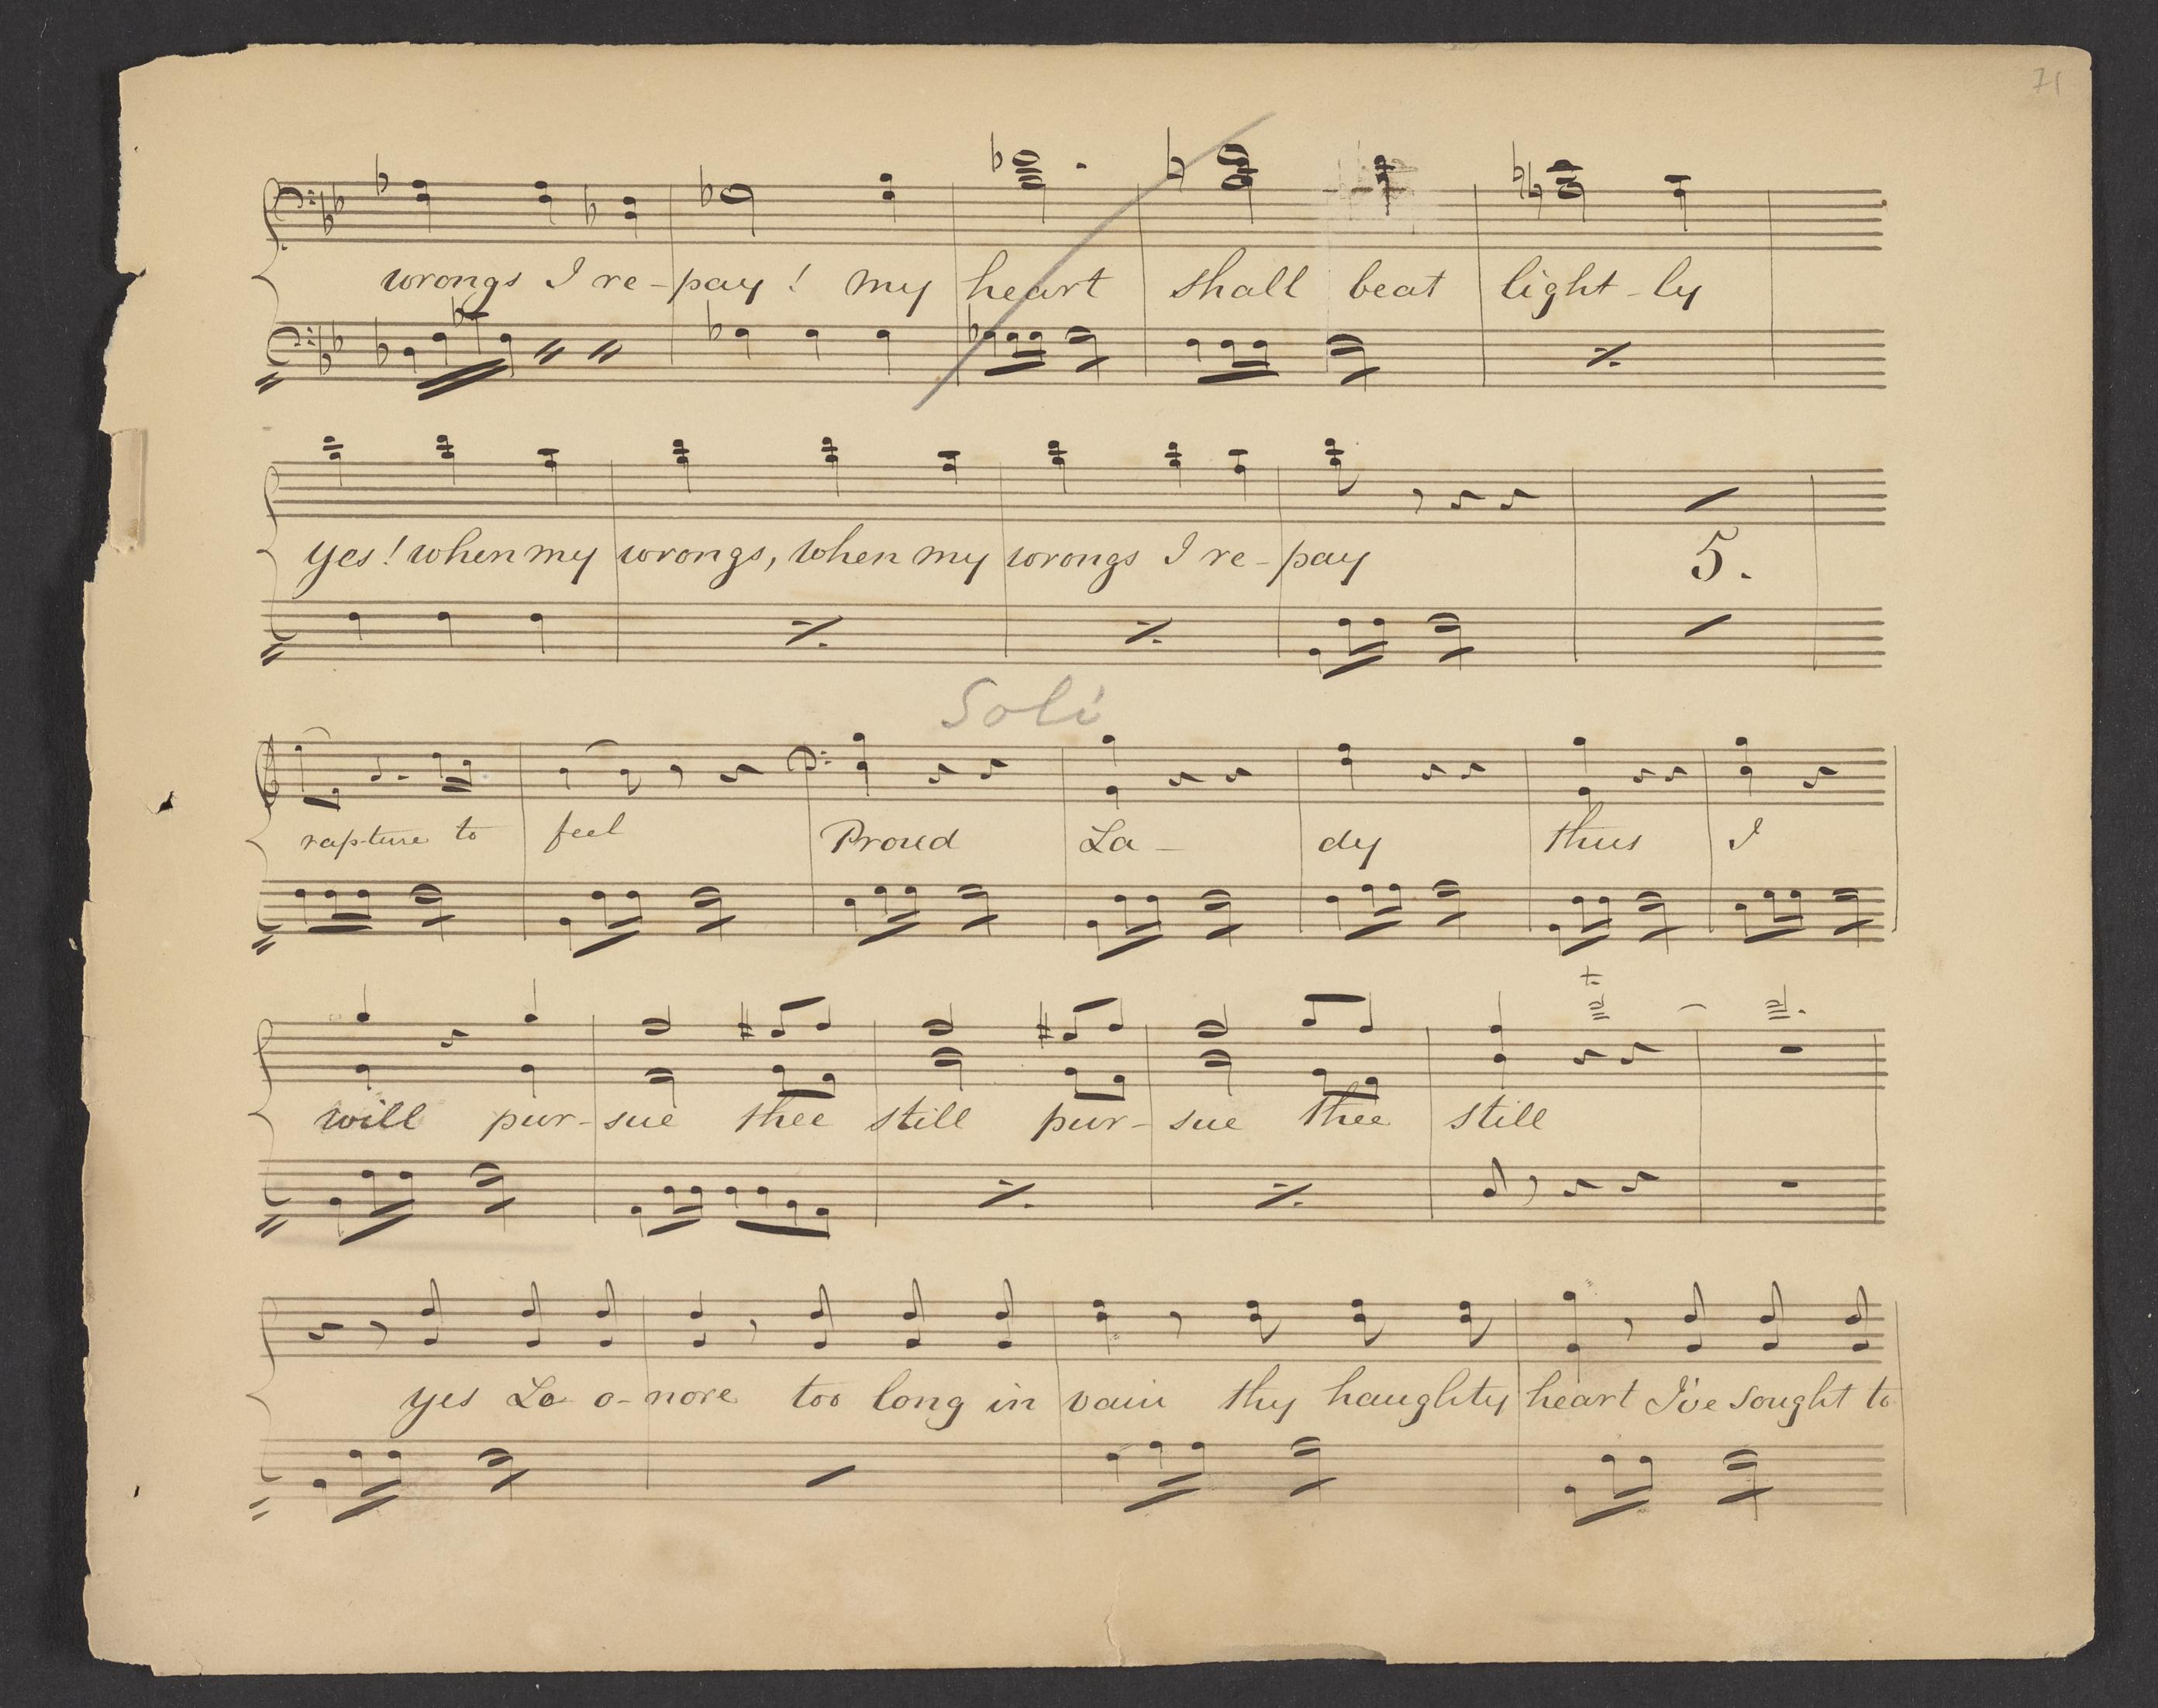 71
wrongs I re-pay! my heart shall beat light-ly
yes! when my wrongs, when my wrongs I re-pay 5.
Soli
rapture to feel Proud La- dy thus I
will pur-sue thee still pur-sue thee still
yes Le o-nore too long in vain thy haughty heart I've sought to